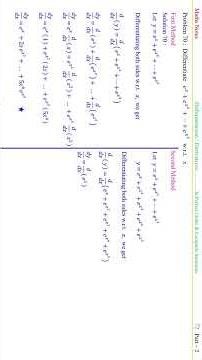 Maths Notes
72 Part - 2
Problem 70 : Differentiate e^x + e^{x^2} + ... + e^{x^5} w.r.t. x.
First Method
Solution 70 :
Let y = e^x + e^{x^2} + ... + e^{x^5}
Differentiating both sides w.r.t. x, we get
d/dx (y) = d/dx (e^x + e^{x^2} + ... + e^{x^5})
dy/dx = d/dx (e^x) + d/dx (e^{x^2}) + ... + d/dx (e^{x^5})
dy/dx = e^x d/dx (x) + e^{x^2} d/dx (x^2) + ... + e^{x^5} d/dx (x^5)
dy/dx = e^x (1) + e^{x^2} (2x) + ... + e^{x^5} (5x^4)
dy/dx = e^x + 2x e^{x^2} + ... + 5x^4 e^{x^5} ★
Second Method
Let y = e^x + e^{x^2} + ... + e^{x^5}
y = e^x + e^{x^2} + e^{x^3} + e^{x^4} + e^{x^5}
Differentiating both sides w.r.t. x, we get
d/dx (y) = d/dx (e^x + e^{x^2} + e^{x^3} + e^{x^4} + e^{x^5})
dy/dx = d/dx (e^x)